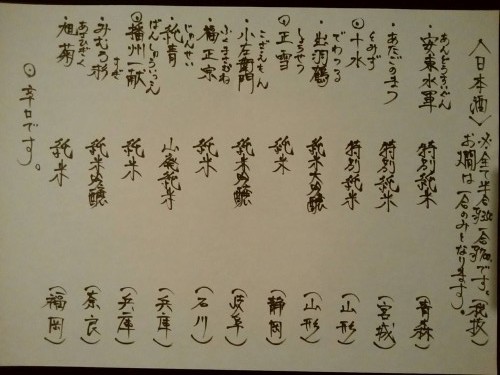 〈日本酒〉 ※全て半合 一合です。(税抜)
お燗は一合のみとなります。
あんどうすいぐん
・安東水軍 特別純米 (青森)
・あたごのまつ 特別純米 (宮城)
とみず
◎十水 特別純米 (山形)
でわつる
・鶴 純米大吟醸 (山形)
しょうせつ
◎正雪 純米 (静岡)
こざえもん
・小左衛門 純米吟醸 (岐阜)
ふくまさむね
・福正宗 純米 (石川)
じゅんせい
・純青 山廃純米 (兵庫)
ばんしゅういっこん
◎播州一献 純米 (兵庫)
すぎ
・みむろ杉 純米吟醸 (奈良)
・菊 純米 (福岡)
◎辛口です。